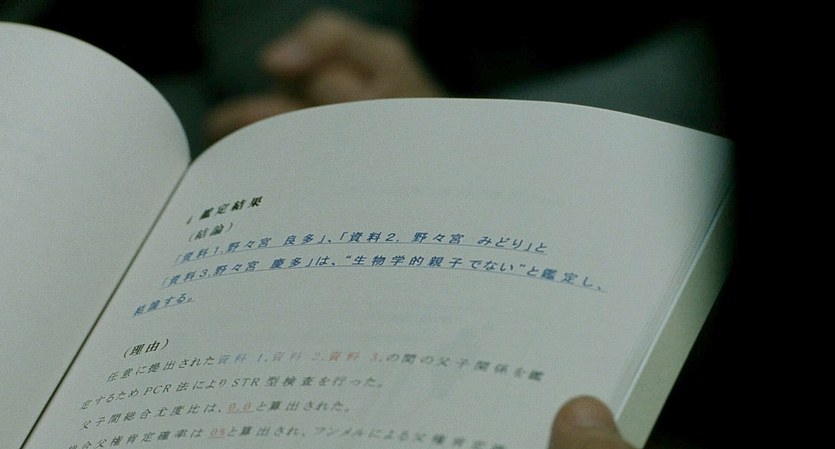 4 鑑定結果
(結論)
「資料1.野々宮 良多」、「資料2. 野々宮 みどり」と
「資料3.野々宮 慶多」は、“生物学的親子でない”と鑑定し、
結論する。
(理由)
任意に提出された資料 1.資料 2.資料 3.の間の父子関係を鑑
定するため PCR 法により STR 型検査を行った。
父子間総合尤度比は、0.0 と算出された。
総合父権肯定確率は 0%と算出され、フンメルによる父権肯定確